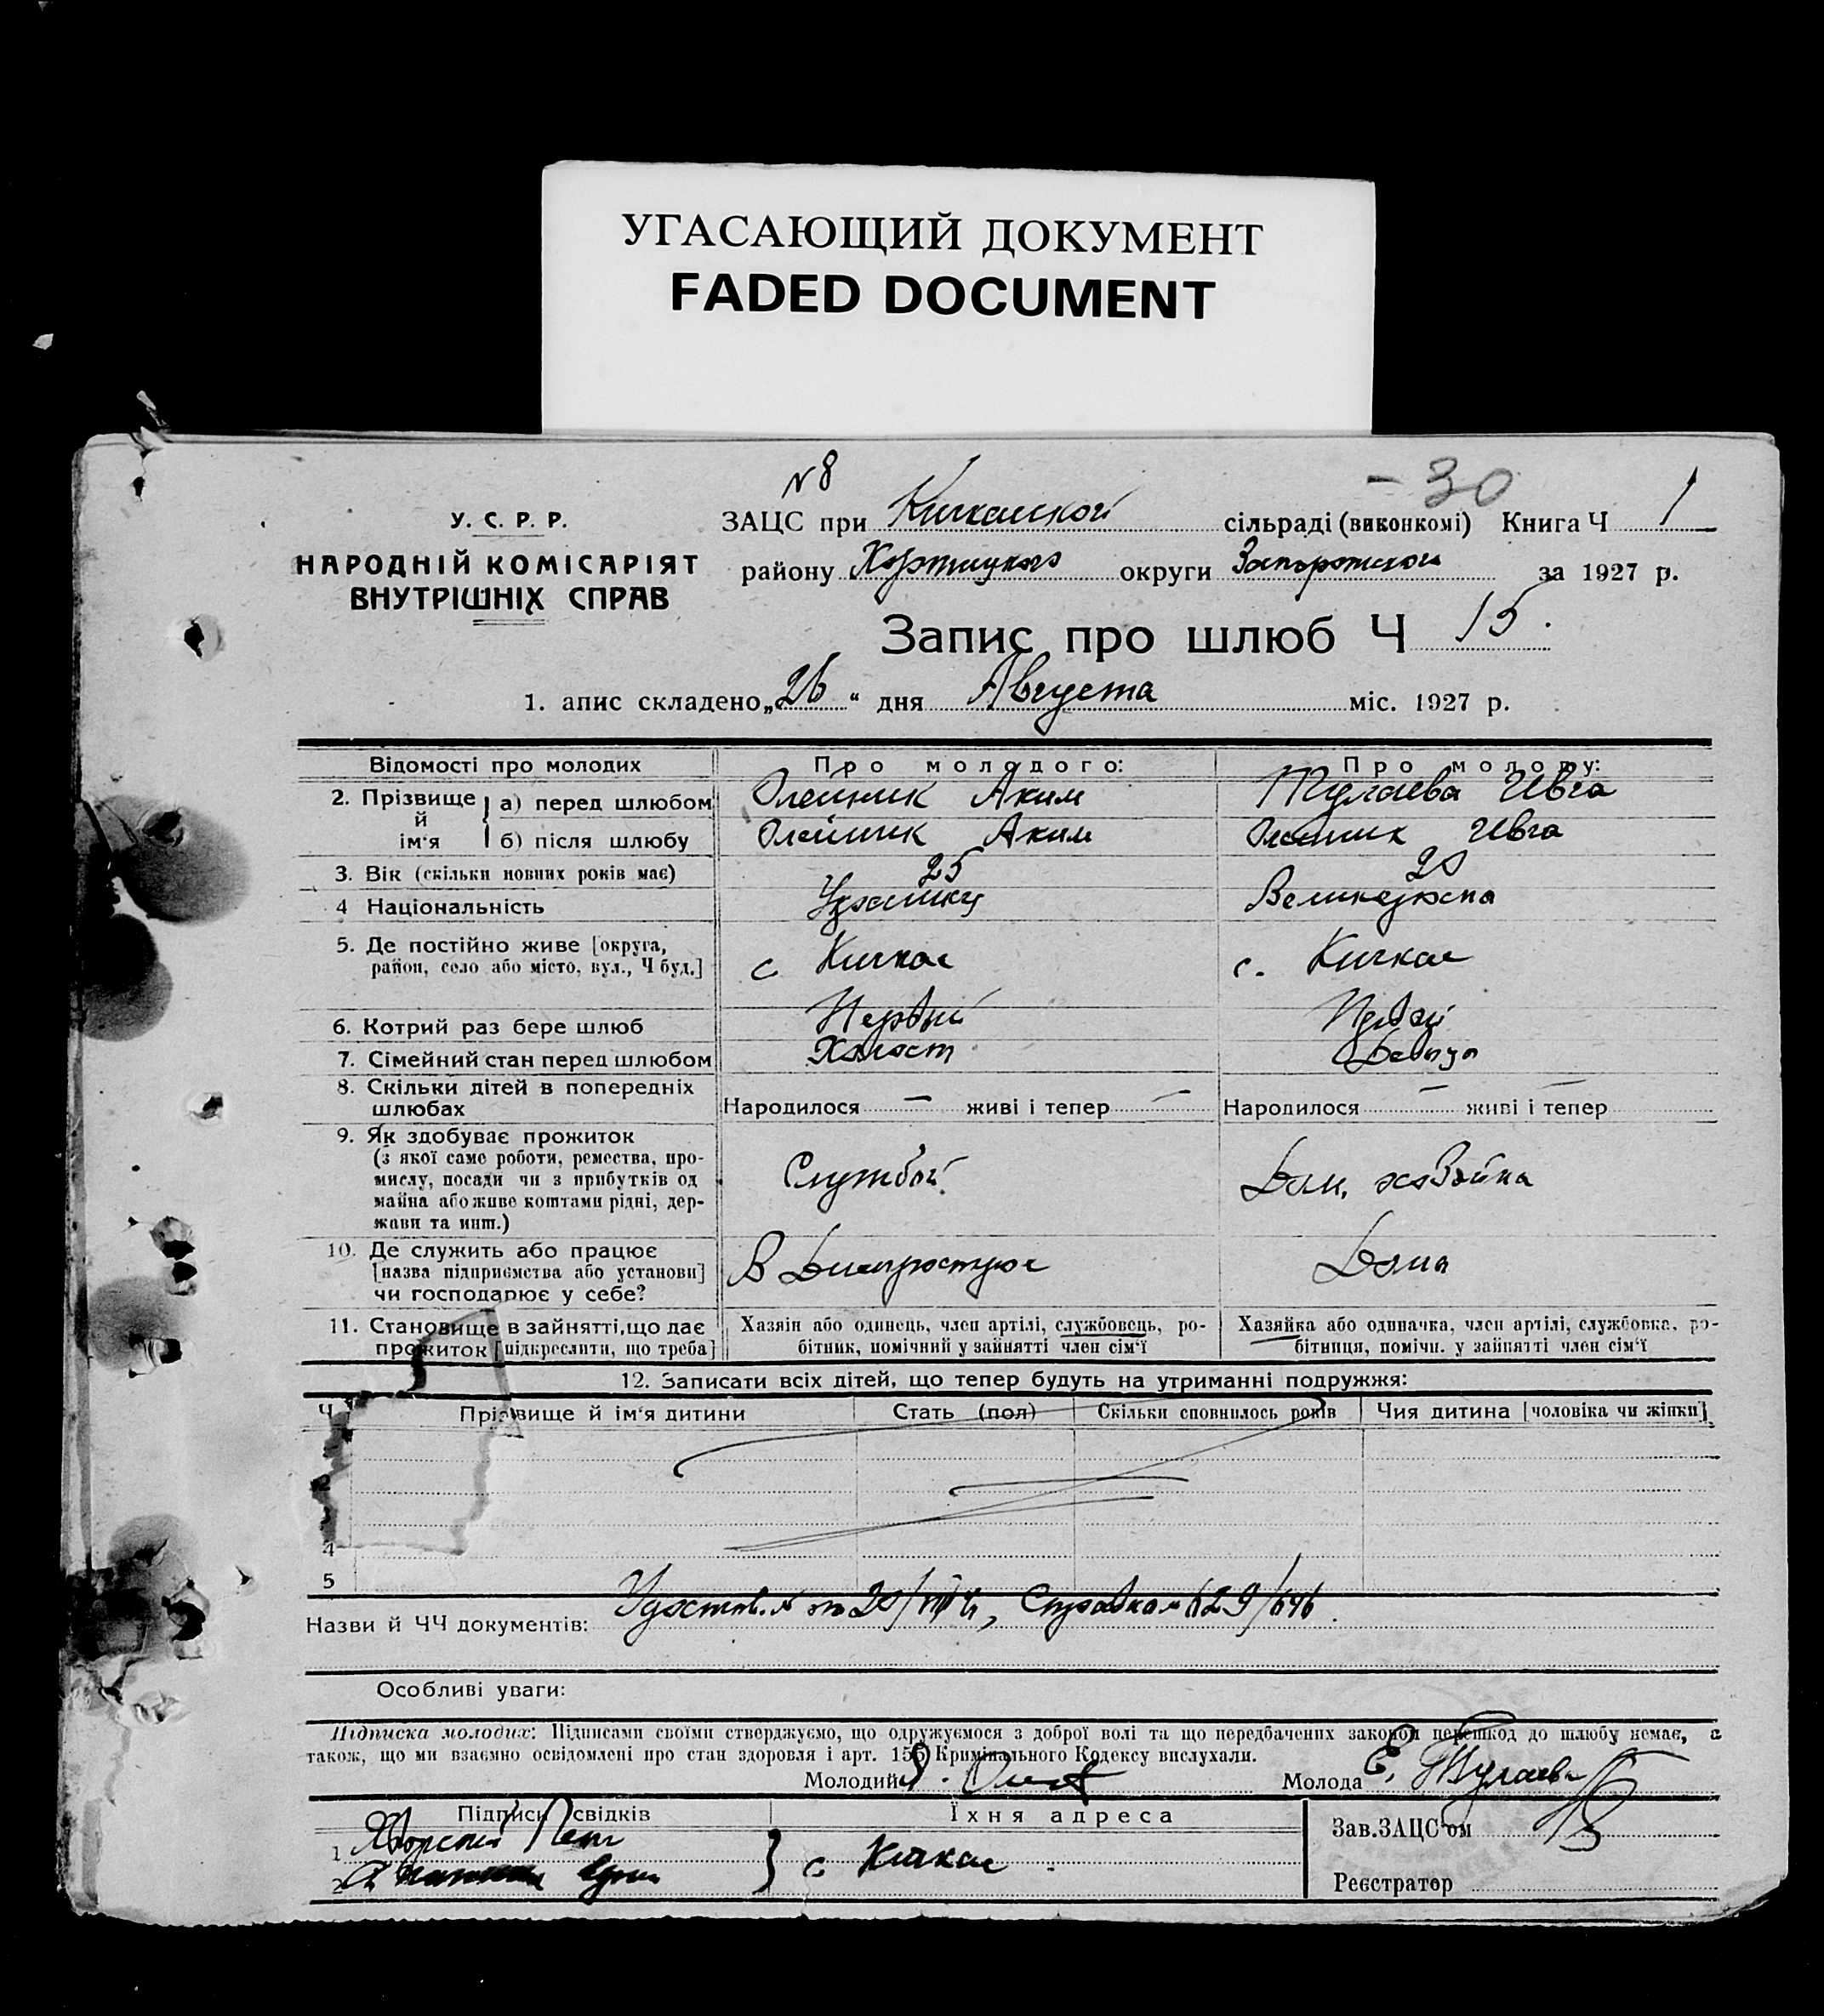 УГАСАЮЩИЙ ДОКУМЕНТ
FADED DOCUMENT
№8
- 30
У. С. Р. Р.
НАРОДНІЙ КОМІСАРІЯТ
ВНУТРІШНІХ СПРАВ
ЗАЦС при Кичкасской сільраді (виконкомі) Книга Ч 1
району Хортицкого округи Запорожской за 1927 р.
Запис про шлюб Ч 15.
1. апис складено „26“ дня Августа міс. 1927 р.
Відомості про молодих Про молодого: Про молоду:
2. Прізвище й ім‘я а) перед шлюбом Олейник Аким Тулаева Ивга
б) після шлюбу Олейник Аким Олейник Ивга
3. Вік (скільки повних років має) 25 20
4 Національність Украинец Великоросска
5. Де постійно живе [округа, район, село або місто, вул., Ч буд.] с. Кичкас с. Кичкас
6. Котрий раз бере шлюб Первый Первый
7. Сімейний стан перед шлюбом Холост Девица
8. Скільки дітей в попередніх шлюбах Народилося — живі і тепер — Народилося — живі і тепер —
9. Як здобуває прожиток
(з якої саме роботи, ремества, про-
мислу, посади чи з прибутків од
майна або живе коштами рідні, дер-
жави та инш.)
Службой Дом. хозяйка
10. Де служить або працює
[назва підприємства або установи]
чи господарює у себе?
В Днепрострое Дома
11. Становище в зайнятті, що дає
прожиток [підкреслити, що треба]
Хазяін або одинець, член артілі, службовець, ро-
бітник, помічний у зайнятті член сім‘ї
Хазяйка або одиначка, член артілі, службовка, ро-
бітниця, помічн. у зайнятті член сім‘ї
12. Записати всіх дітей, що тепер будуть на утриманні подружжя:
Ч Прізвище й ім‘я дитини Стать (пол) Скільки сповнилось років Чия дитина [чоловіка чи жінки]
2
3
4
5
Назви й ЧЧ документів: Удостов. 20/VIII Справка 629/646.
Особливі уваги:
Підписка молодих: Підписами своїми стверджуємо, що одружуємося з доброї волі та що передбачених законом перешкод до шлюбу немає, а
також, що ми взаємно освідомлені про стан здоровля і арт. 156 Кримінального Кодексу вислухали.
Молодий Молода Е. Тулаева
Підписи свідків Їхня адреса Зав. ЗАЦС‘ом
1
2
с Кичкас
Реєстратор